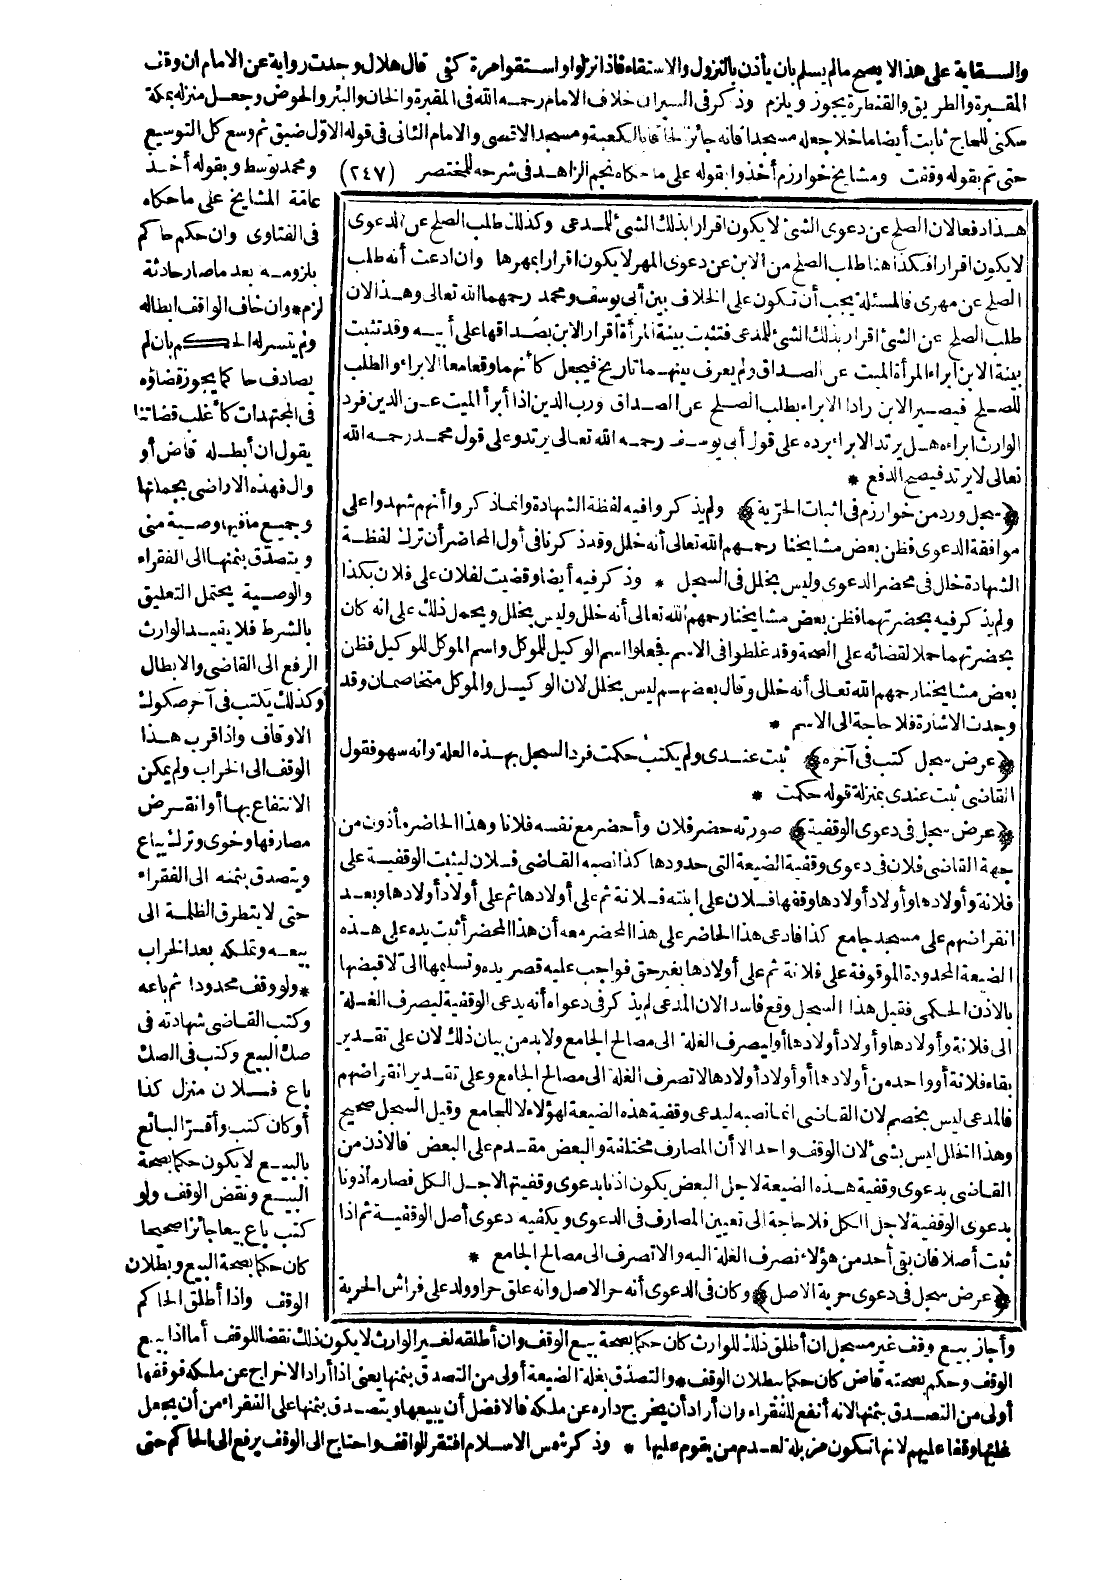 والسقاية على هذا لا يصح مالم يسلم بان يأذن بالنزول والاستقاء فاذا نزلوا واستقوا مرة كفى قال هلال وجدت رواية عن الامام ان وقف
المقبرة والطريق والقنطرة يجوز ويلزم وذكر فى السير ان خلاف الامام رحمه الله فى المقبرة والخان والبئر والحوض وجعل منزله بمكة
سكنى للحاج ثابت أيضا ما خلا جعله مسجدا فانه جائز الحاقا بالكعبة ومسجد الاقصى والامام الثانى فى قوله الاول ضيق ثم وسع كل التوسيع
حتى تم بقوله وقفت ومشايخ خوارزم أخذوا بقوله على ما حكاه نجم الزاهد فى شرحه للمختصر (٢٤٧) ومحمد توسط وبقوله أخذ
عامّة المشايخ على ما حكاه
فى الفتاوى وان حكم حاكم
بلزومه بعد ما صار حادثة
لزم * وان خاف الواقف ابطاله
ولم يتيسر له الحكم بان لم
يصادف حاكما يجوز قضاؤه
فى المجتهدات كأغلب قضاتنا
يقول ان أبطله قاض أو
وال فهذه الاراضى بجملتها
وجميع ما فيها وصية منى
ويتصدّق بثمنها الى الفقراء
والوصية يحتمل التعليق
بالشرط فلا يفيد الوارث
الرفع الى القاضى والابطال
وكذلك يكتب فى آخر صكوك
الاوقاف واذا قرب هذا
الوقف الى الخراب ولم يمكن
الانتفاع بها أو انقرض
مصارفها وخوى وترك يباع
ويتصدق بثمنه الى الفقراء
حتى لا يتطرق الظلمة الى
بيعه وتملكه بعد الخراب
* ولو وقف محدودا ثم باعه
وكتب القاضى شهادته فى
صك البيع وكتب فى الصك
باع فلان منزل كذا
أو كان كتب وأقرّ البائع
بالبيع لا يكون حكما بصحة
البيع ونقض الوقف ولو
كتب باع بيعا جائزا صحيحا
كان حكما بصحة البيع وبطلان
الوقف واذا أطلق الحاكم
هذا دفعا لان الصلح عن دعوى الشئ لا يكون اقرارا بذلك الشئ للمدعى وكذلك طلب الصلح عن الدعوى
لا يكون اقرارا فكذا هنا طلب الصلح من الابن عن دعوى المهر لا يكون اقرارا بمهرها وان ادعت أنه طلب
الصلح عن مهرى فالمسئلة يجب أن تكون على الخلاف بين أبى يوسف ومحمد رحمهما الله تعالى وهذا لان
طلب الصلح عن الشئ اقرار بذلك الشئ للمدعى فتثبت بينة المرأة اقرار الابن بصداقها على أبيه وقد تثبت
بينة الابن ابراء المرأة الميت عن الصداق ولم يعرف بينهما تاريخ فيجعل كأنهما وقعا معا الابراء والطلب
للصلح فيصير الابن رادا الابراء بطلب الصلح عن الصداق ورب الدين اذا أبرأ الميت عن الدين فرد
الوارث ابراءه هل يرتد الابراء برده على قول أبى يوسف رحمه الله تعالى يرتد وعلى قول محمد رحمه الله
تعالى لا يرتد فيصح الدفع *
﴿سجل ورد من خوارزم فى اثبات الحرّية﴾ ولم يذكروا فيه لفظة الشهادة وانما ذكروا أنهم شهدوا على
موافقة الدعوى فظن بعض مشايخنا رحمهم الله تعالى أنه خلل وقد ذكرنا فى أول المحاضر أن ترك لفظة
الشهادة خلل فى محضر الدعوى وليس بخلل فى السجل * وذكر فيه أيضا وقضيت لفلان على فلان بكذا
ولم يذكر فيه بحضرتهما فظن بعض مشايخنا رحمهم الله تعالى أنه خلل وليس بخلل ويحمل ذلك على انه كان
بحضرتهما حملا لقضائه على الصحة وقد غلطوا فى الاسم فجعلوا اسم الوكيل للموكل واسم الموكل للوكيل فظن
بعض مشايخنا رحمهم الله تعالى أنه خلل وقال بعضهم ليس بخلل لان الوكيل والموكل متخاصمان وقد
وجدت الاشارة فلا حاجة الى الاسم *
﴿عرض سجل كتب فى آخره﴾ ثبت عندى ولم يكتب حكمت فرد السجل بهذه العلة وانه سهو فقول
القاضى ثبت عندى بمنزلة قوله حكمت *
﴿عرض سجل فى دعوى الوقفية﴾ صورته حضر فلان وأحضر مع نفسه فلانا وهذا الحاضر مأذون من
جهة القاضى فلان فى دعوى وقفية الضيعة التى حدودها كذا نصبه القاضى فلان ليثبت الوقفية على
فلانة وأولادها وأولاد أولادها وقفها فلان على ابنته فلانة ثم على أولادها ثم على أولاد أولادها وبعد
انقراضهم على مسجد جامع كذا فادعى هذا الحاضر على هذا المحضر معه أن هذا المحضر أثبت يده على هذه
الضيعة المحدودة الموقوفة على فلانة ثم على أولادها بغير حق فواجب عليه قصر يده وتسليمها الىّ لا قبضها
بالاذن الحكمى فقيل هذا السجل وقع فاسدا لان المدعى لم يذكر فى دعواه أنه يدعى الوقفية ليصرف الغلة
الى فلانة وأولادها وأولاد أولادها أو ليصرف الغلة الى مصالح الجامع ولا بد من بيان ذلك لان على تقدير
بقاء فلانة أو واحد من أولادها أو أولاد أولادها لا تصرف الغلة الى مصالح الجامع وعلى تقدير انقراضهم
فالمدعى ليس بخصم لان القاضى انما نصبه ليدعى وقفية هذه الضيعة لهؤلاء لا للجامع وقيل السجل صحيح
وهذا الخلل ليس بشئ لان الوقف واحد الا أن المصارف مختلفة والبعض مقدم على البعض فالاذن من
القاضى بدعوى وقفية هذه الضيعة لاجل البعض يكون اذنا بدعوى وقفيتها لاجل الكل فصار مأذونا
بدعوى الوقفية لاجل الكل فلا حاجة الى تعيين المصارف فى الدعوى ويكفيه دعوى أصل الوقفية ثم اذا
ثبت أصلا فان بقى أحد من هؤلاء تصرف الغلة اليه والا تصرف الى مصالح الجامع *
﴿عرض سجل فى دعوى حرية الاصل﴾ وكان فى الدعوى أنه حر الاصل وانه علق حرا وولد على فراش الحرية
وأجاز بيع وقف غير مسجل ان أطلق ذلك للوارث كان حكما بصحة بيع الوقف وان أطلقه لغير الوارث لا يكون ذلك نقضا للوقف أما اذا بيع
الوقف وحكم بصحته قاض كان حكما ببطلان الوقف * والتصدّق بغلة الضيعة أولى من التصدق بثمنها يعنى اذا أراد الاخراج عن ملكه فوقفها
أولى من التصدق بثمنها لانه أنفع للفقراء وان أراد أن يخرج داره عن ملكه فالافضل أن يبيعها ويتصدق بثمنها على الفقراء من أن يجعل
غلتها وقفا عليهم لانها تكون مزبلة لعدم من يقوم عليها * وذكر شمس الاسلام افتقر الواقف واحتاج الى الوقف يرفع الى الحاكم حتى